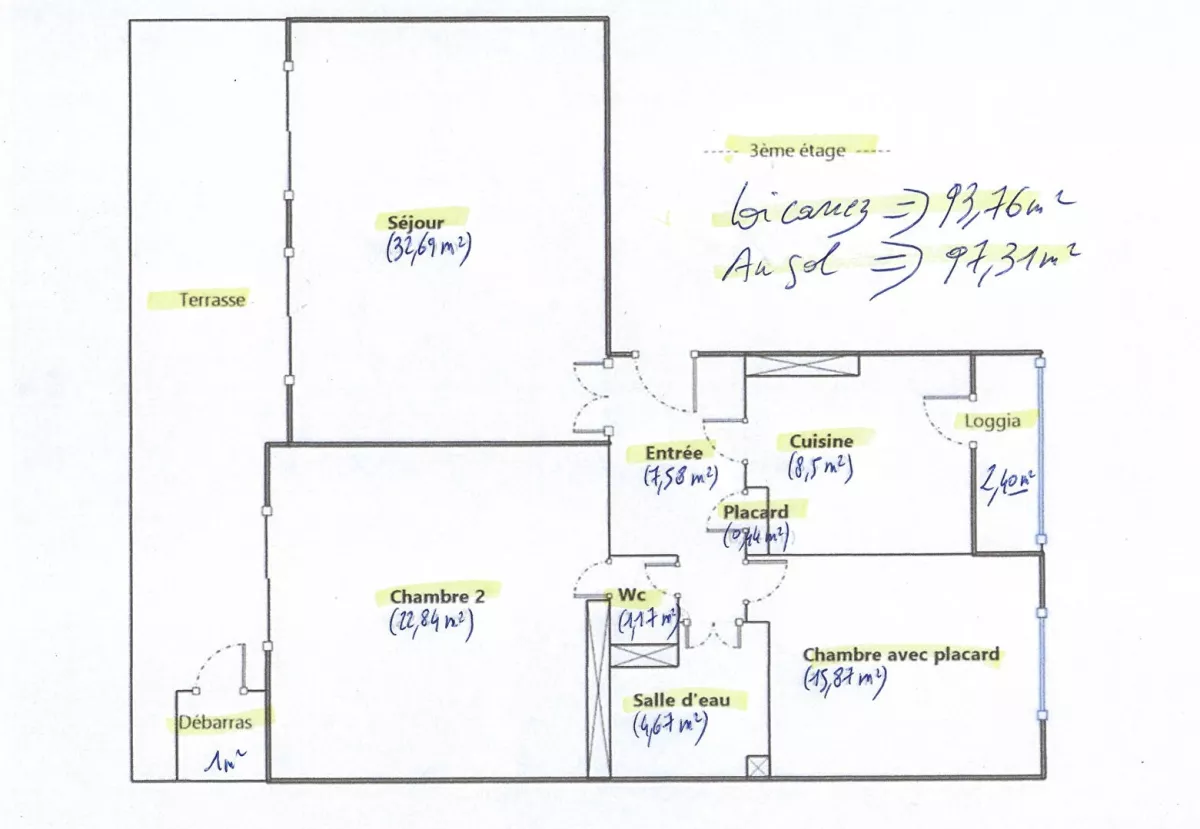 3ème étage
Loi carrez => 93,76 m²
Au sol => 97,31 m²
Séjour
(32,69 m²)
Terrasse
Loggia
2,40 m²
Cuisine
(8,5 m²)
Entrée
(7,58 m²)
Placard
Chambre 2
(22,84 m²)
Wc
(1,17 m²)
Chambre avec placard
(15,87 m²)
Salle d'eau
(4,67 m²)
Débarras
1 m²